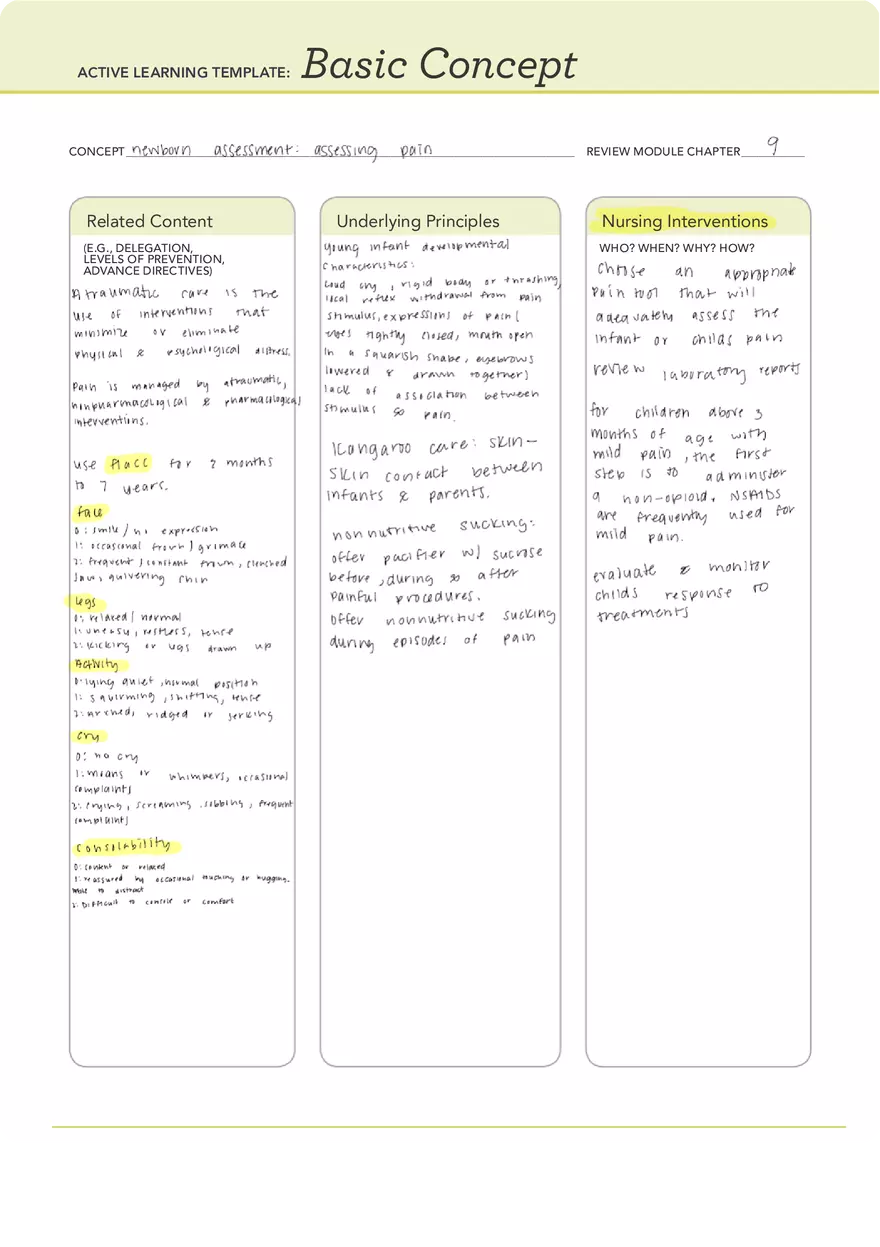 ACTIVE LEARNING TEMPLATE: Basic Concept
CONCEPT newborn assessment: assessing pain
REVIEW MODULE CHAPTER 9
Related Content
(E.G., DELEGATION,
LEVELS OF PREVENTION,
ADVANCE DIRECTIVES)
Atraumatic care is the
use of interventions that
minimize or eliminate
physical & psychological distress.
Pain is managed by atraumatic,
nonpharmacological & pharmacological
interventions.
use flacc for 2 months
to 7 years.
face
0: smile / no expression
1: occasional frown / grimace
2: frequent / constant frown, clenched
jaw, quivering chin
legs
0: relaxed / normal
1: uneasy, restless, tense
2: kicking or legs drawn up
Activity
0: lying quiet, normal position
1: squirming, shifting, tense
2: arched, ridged or jerking
cry
0: no cry
1: moans or whimpers, occasional
complaints
2: crying, screaming, sobbing, frequent
complaints
consolability
0: content or relaxed
1: reassured by occasional touching or hugging.
able to distract
2: Difficult to console or comfort
Underlying Principles
young infant developmental
characteristics:
loud cry, rigid body or thrashing,
local reflex withdrawal from pain
stimulus, expressions of pain (
eyes tightly closed, mouth open
in a squarish shape, eyebrows
lowered & drawn together)
lack of association between
stimulus & pain.
Kangaroo care: skin-
skin contact between
infants & parents.
nonnutritive sucking:
offer pacifier w/ sucrose
before, during & after
painful procedures.
offer nonnutritive sucking
during episodes of pain
Nursing Interventions
WHO? WHEN? WHY? HOW?
Choose an appropriate
pain tool that will
adequately assess the
infant or childs pain
review laboratory reports
for children above 3
months of age with
mild pain, the first
step is to administer
a non-opioid. NSAIDS
are frequently used for
mild pain.
evaluate & monitor
childs response to
treatments